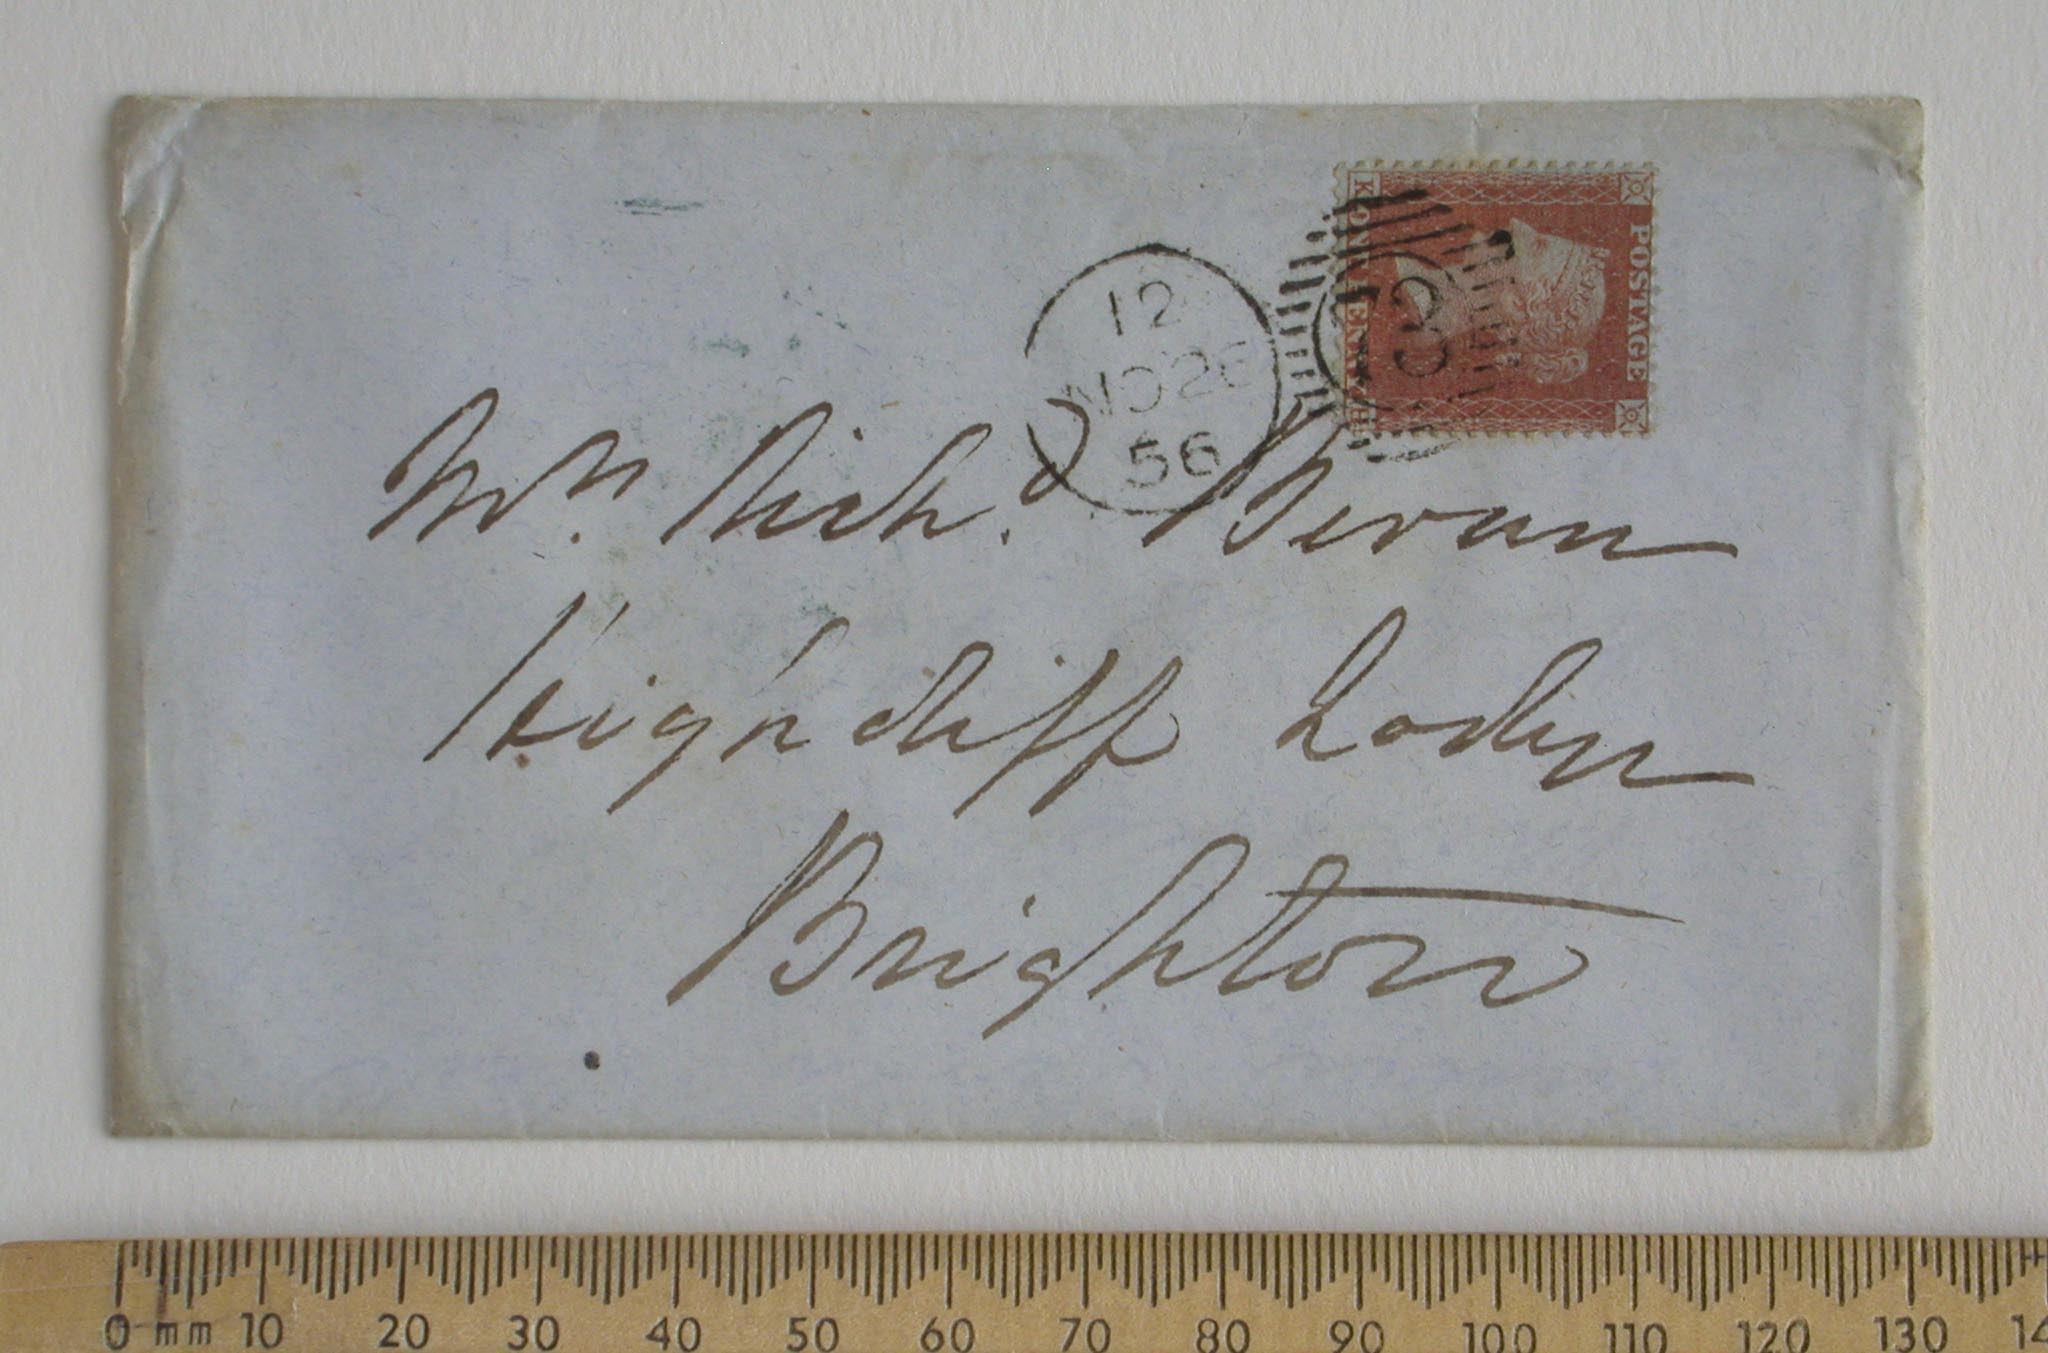 POSTAGE
K ONE PENNY H
12
NO 26
56
Mrs. Richd. Bevan
Highcliff Lodge
Brighton
0 mm 10 20 30 40 50 60 70 80 90 100 110 120 130 14